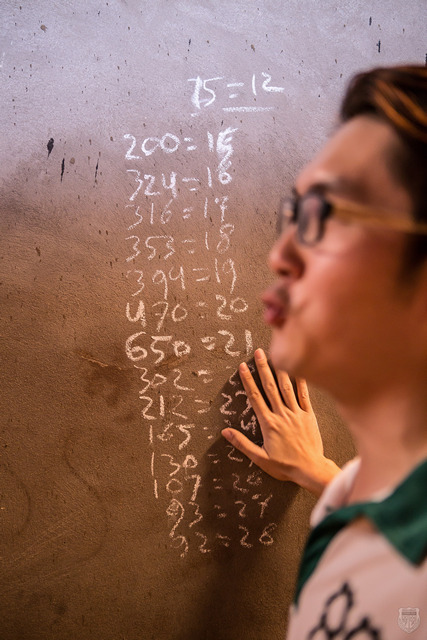 75=12
200=15
324=16
316=17
353=18
394=19
470=20
650=21
302=
212=23
165=
130=
107=26
93=27
92=28